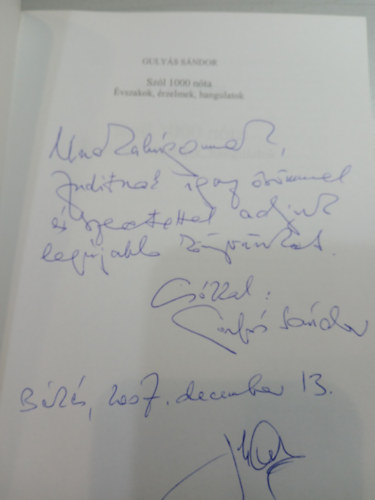 GULYÁS SÁNDOR
Szól 1000 nóta
Évszakok, érzelmek, hangulatok
Unokahúgomnak,
Juditnak igaz örömmel
és szeretettel adjuk
legújabb könyvünket.
Csókkal:
Gulyás Sándor
Békés, 2007. december 13.